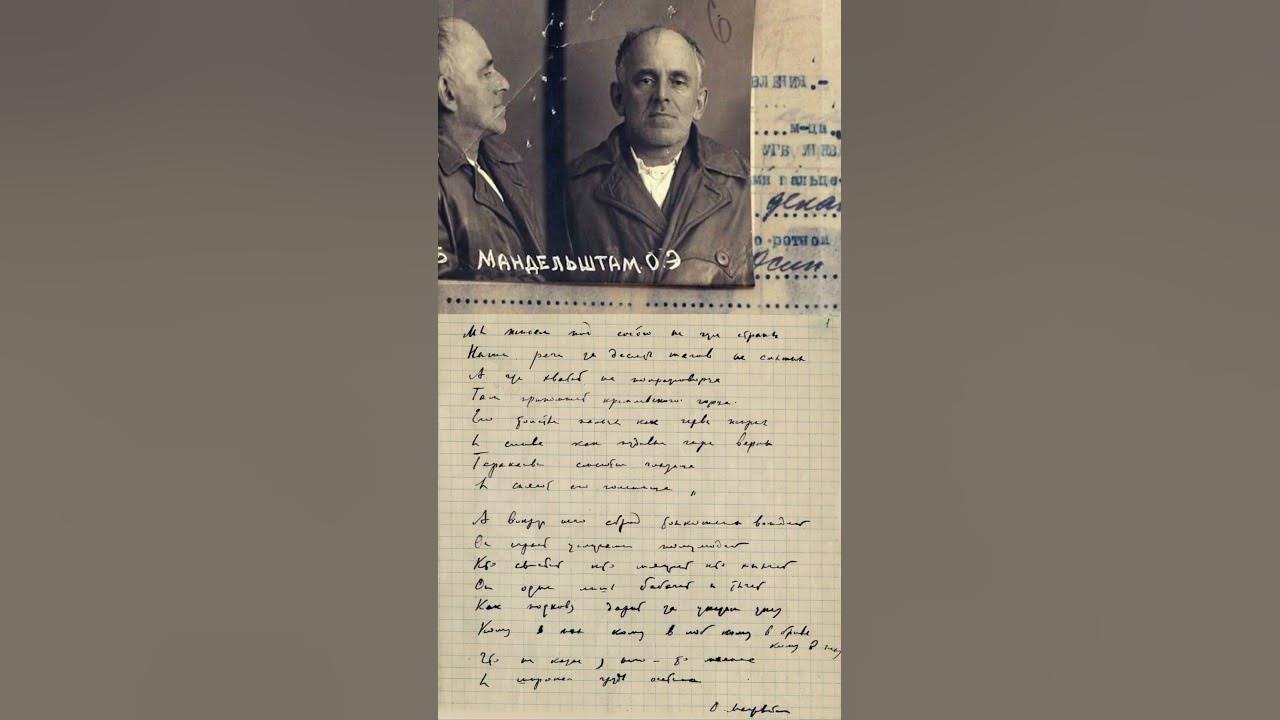 6
5 МАНДЕЛЬШТАМ. О.Э
влении.-
м-ца.
ми пальце-
дека
Осип
1
Мы живем под собою не чуя страны
Наши речи за десять шагов не слышны
А где хватит на полразговорца
Там припомнят кремлевского горца.
Его толстые пальцы как черви жирны
И слова как пудовые гири верны
Тараканьи смеются глазища
И сияют его голенища
А вокруг него сброд тонкошеих вождей
Он играет услугами полулюдей
Кто свистит кто мяучит кто хнычет
Он один лишь бабачит и тычет
Как подкову дарит за указом указ
Кому в пах кому в лоб кому в бровь
кому в глаз
Что ни казнь у него - то малина
И широкая грудь осетина
О. Мандельштам